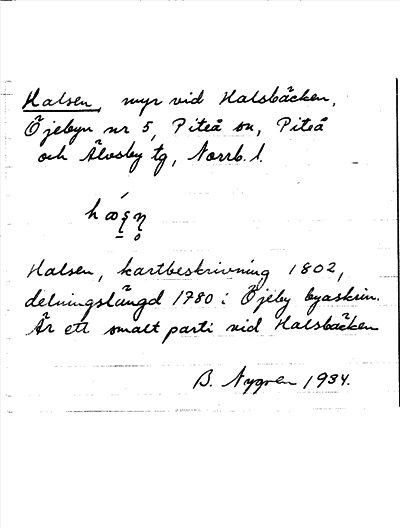 Halsen, myr vid Halsbäcken,
Öjebyn nr 5, Piteå sn, Piteå
och Älvsby tg, Norrb. l.
Halsen, kartbeskrivning 1802,
delningslängd 1780 i Öjeby byaskrin.
Är ett smalt parti vid Halsbäcken
B. Nygren 1934.